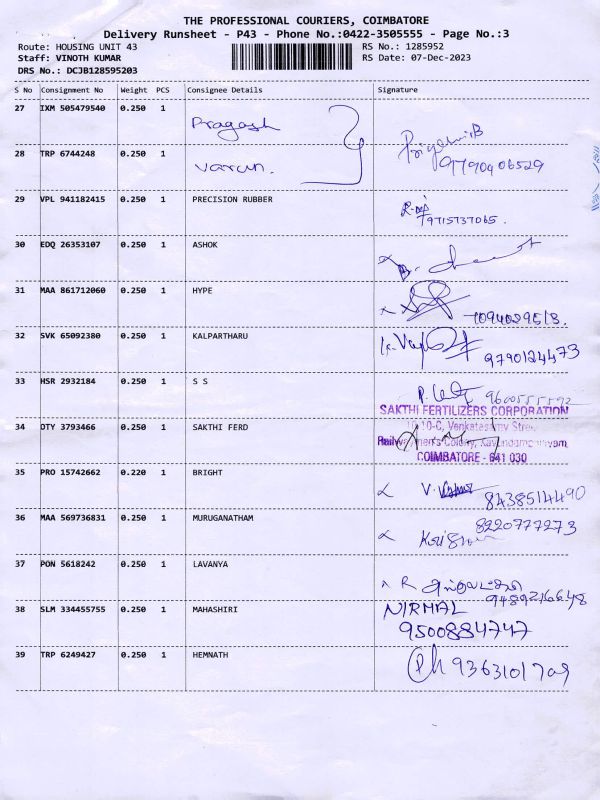 THE PROFESSIONAL COURIERS, COIMBATORE
Delivery Runsheet - P43 - Phone No.:0422-3505555 - Page No.:3
Route: HOUSING UNIT 43 RS No.: 1285952
Staff: VINOTH KUMAR RS Date: 07-Dec-2023
DRS No.: DCJB128595203
S No Consignment No Weight PCS Consignee Details Signature
27 IXM 505479540 0.250 1 Pragash
28 TRP 6744248 0.250 1 Varun. 9790406529
29 VPL 941182415 0.250 1 PRECISION RUBBER 9715737065.
30 EDQ 26353107 0.250 1 ASHOK
31 MAA 861712060 0.250 1 HYPE
32 SVK 65092380 0.250 1 KALPARTHARU 9790124473
33 HSR 2932184 0.250 1 S S
SAKTHI FERTILIZERS CORPORATION
34 OTY 3793466 0.250 1 SAKTHI FERD 10-C, Venkatasamy Street
Colony, Kavundampalayam,
COIMBATORE - 641 030
35 PRO 15742662 0.220 1 BRIGHT 8438514490
36 MAA 569736831 0.250 1 MURUGANATHAM 8220777273
37 PON 5618242 0.250 1 LAVANYA 9489216648
38 SLM 334455755 0.250 1 MAHASHIRI NIRMAL
9500884747
39 TRP 6249427 0.250 1 HEMNATH Ph 9363101709